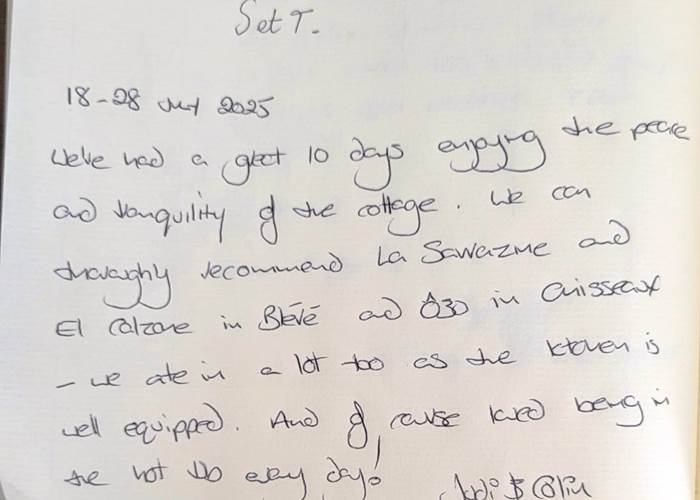 Set T.
18-28 July 2025
We've had a great 10 days enjoying the peace
and tranquility of the cottage. We can
thoroughly recommend La Sarrazine and
El Calzone in Bléré and Ô30 in Cuisseaux
- we ate in a lot too as the kitchen is
well equipped. And of course loved being in
the hot tub every day!
&